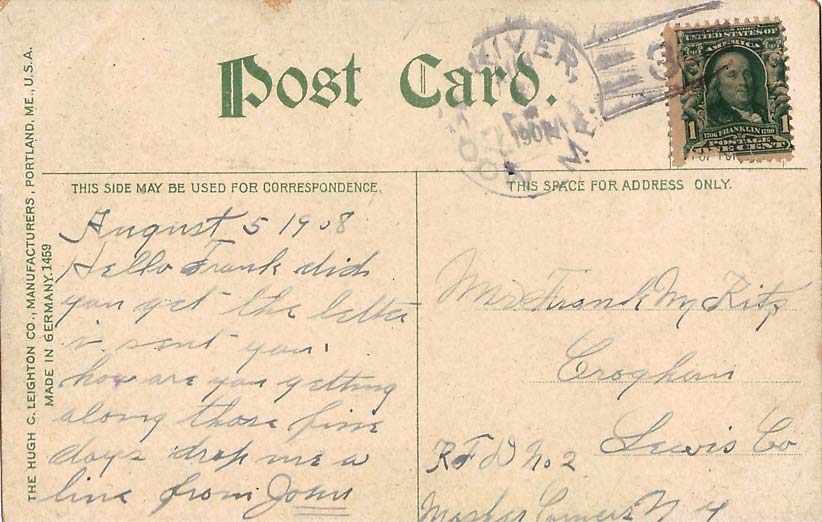 Post Card.
THE HUGH C. LEIGHTON CO., MANUFACTURERS, PORTLAND, ME., U.S.A.
MADE IN GERMANY. 1459
UNITED STATES OF
AMERICA
1 1
1706 FRANKLIN 1790
POSTAGE
ONE CENT
THIS SIDE MAY BE USED FOR CORRESPONDENCE.
August 5 1908
Hello Frank did
you get the letter
i sent you.
how are you getting
along those fine
days drop me a
line from John
THIS SPACE FOR ADDRESS ONLY.
Mr Frank M
Croghan
Lewis Co
R F D No 2
Corners N Y